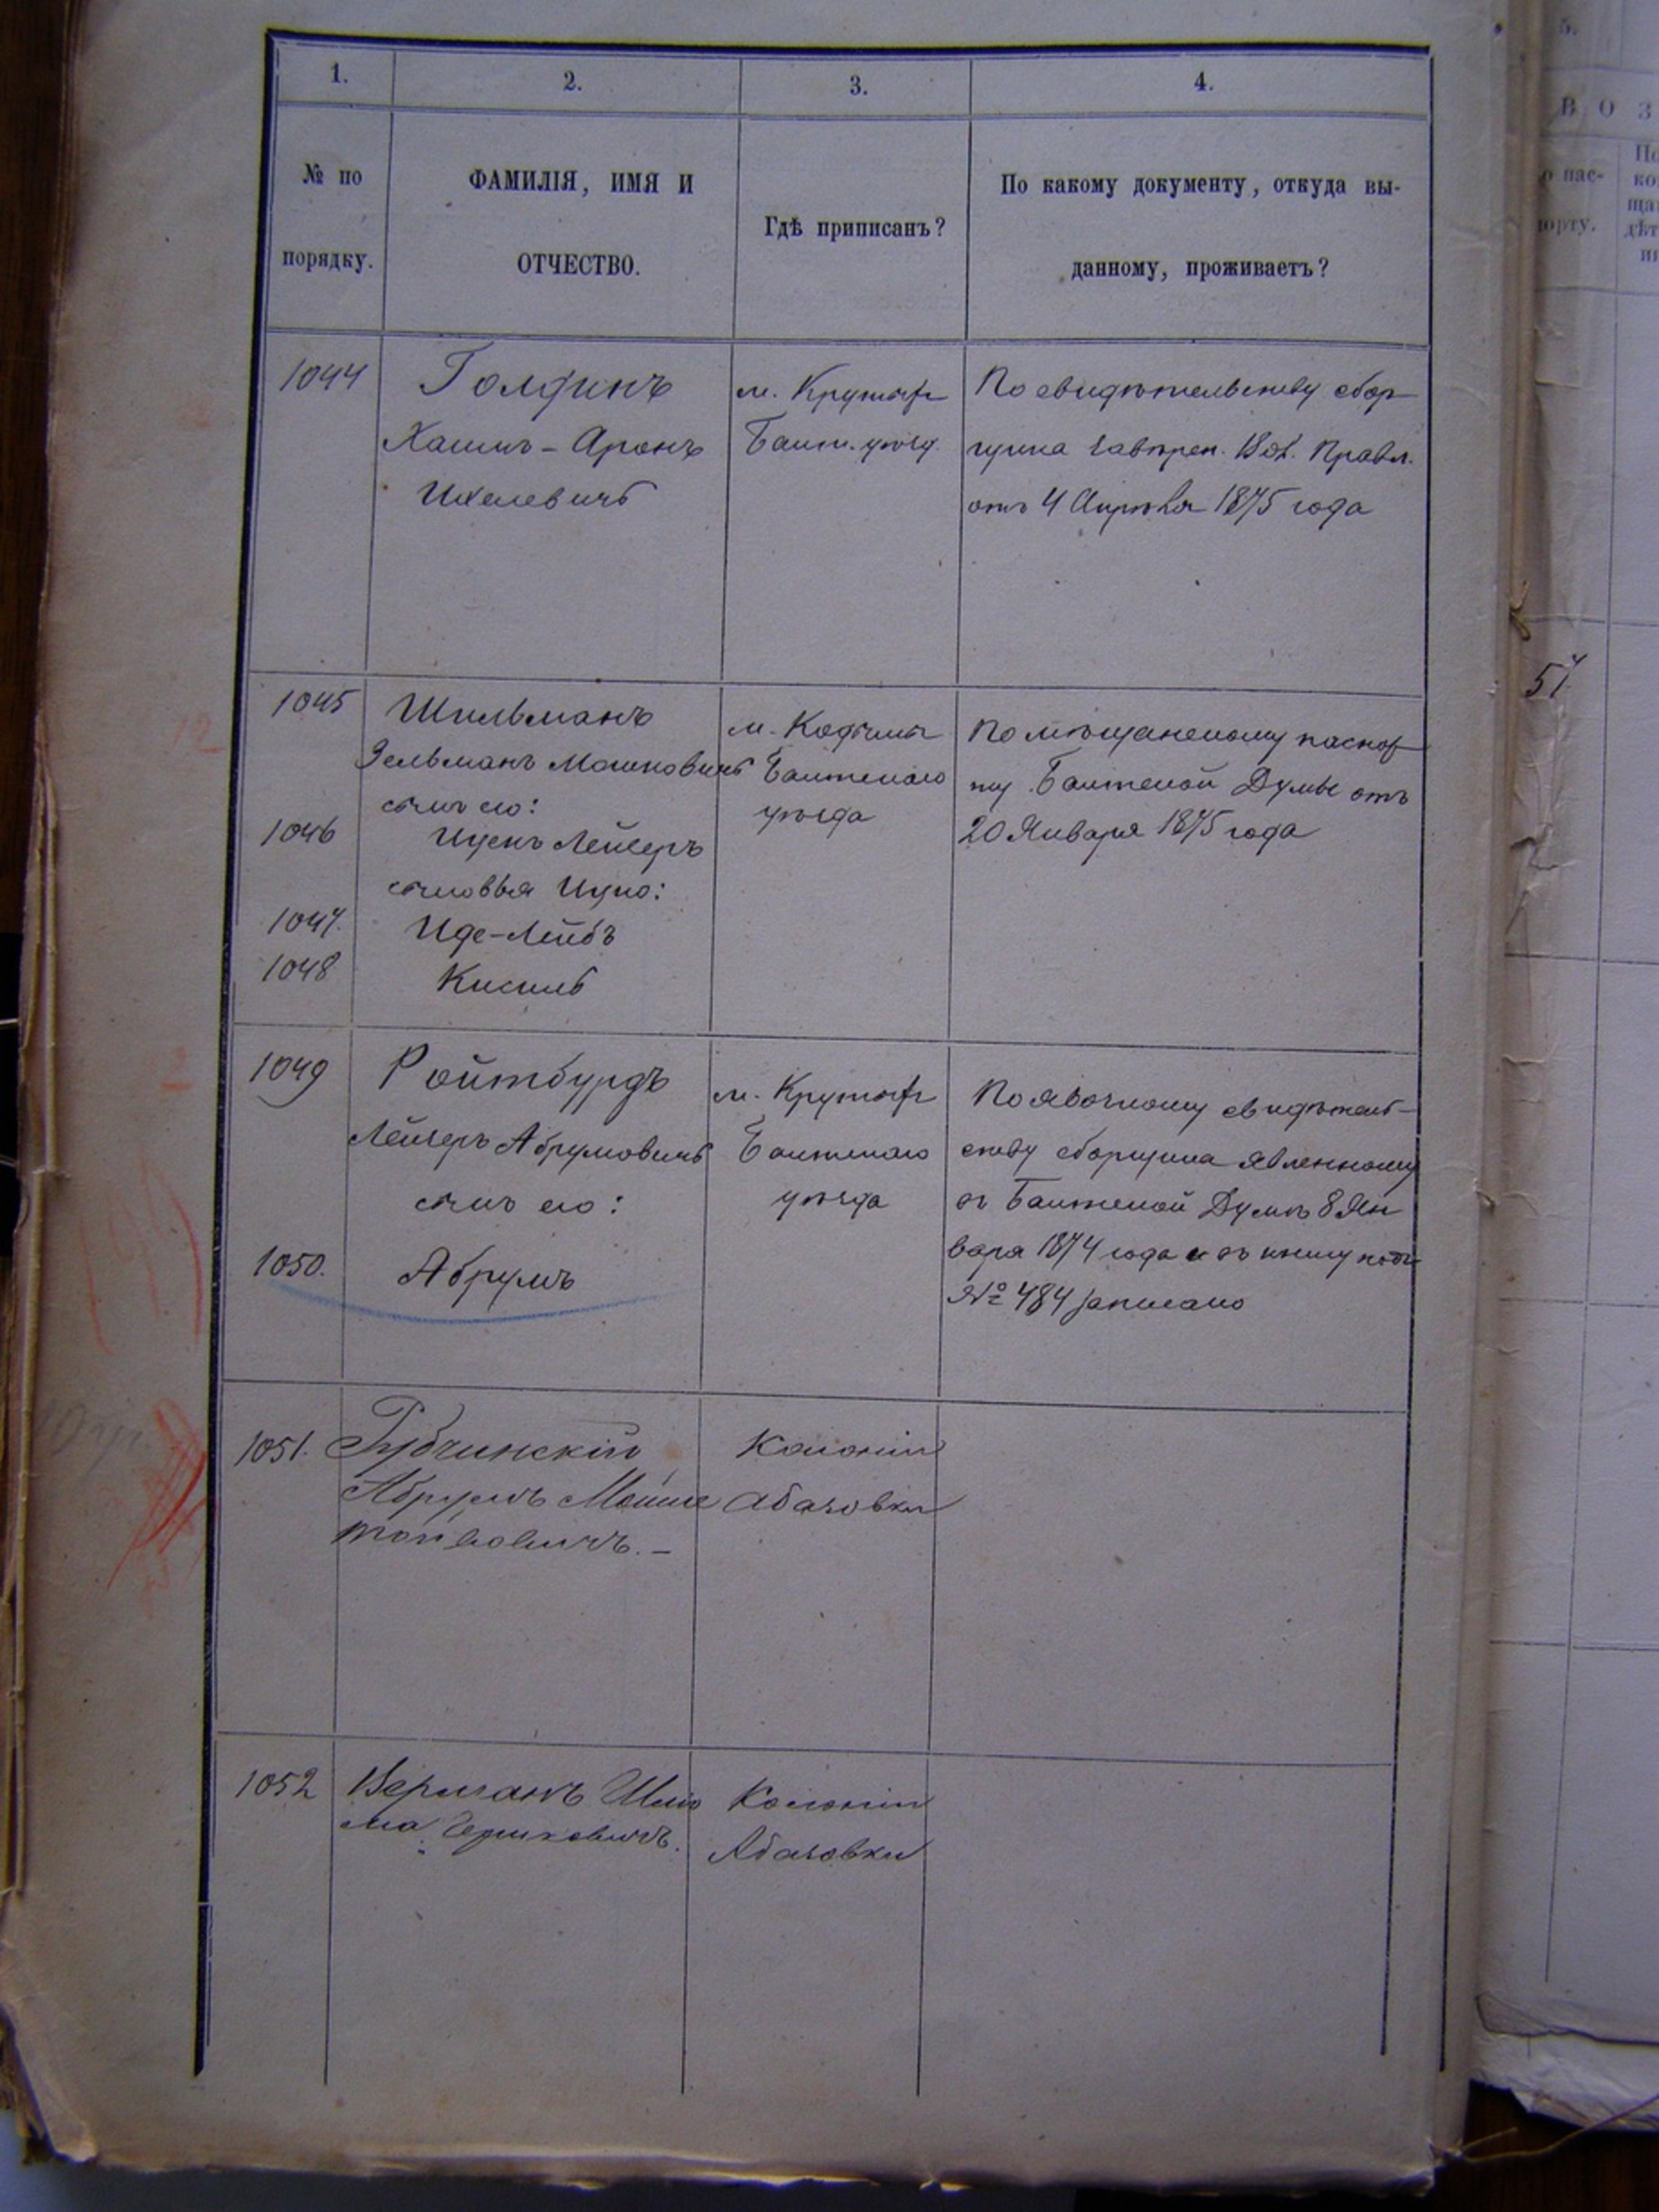 1.
2.
3.
4.
№ по
порядку.
ФАМИЛІЯ, ИМЯ И
ОТЧЕСТВО.
Гдѣ приписанъ?
По какому документу, откуда вы-
данному, проживаетъ?
1044
Голдинъ
Хаимъ-Аронъ
Ихелевичь
м. Крутыхъ
Балт. уѣзд.
По свидѣтельству сбор-
щика
Правл.
отъ 4 Апрѣля 1875 года
1045
Шильманъ
Зельманъ Мошковичь
сынъ его:
1046
Ицекъ Лейзеръ
сыновья Ицко:
1047.
Иде-Лейбъ
1048
Кисиль
м. Кодымы
Балтскаго
уѣзда
По мѣщанскому паспор-
ту Балтской Думы отъ
20 Января 1875 года
1049
Ройтбурдъ
Лейзеръ Абрумовичь
сынъ его:
1050.
Абрумъ
м. Крутыхъ
Балтскаго
уѣзда
По явочному свидѣтель-
ству сборщика явленному
въ Балтской Думѣ 8 Ян
варя 1874 года и въ книгу подъ
№ 484 записано
1051.
Рубчинскій
Абрумъ Мошко
Колоніи
Абазовки
1052
Верманъ Шлио
ма
Колоніи
Абазовки
5.
В О З